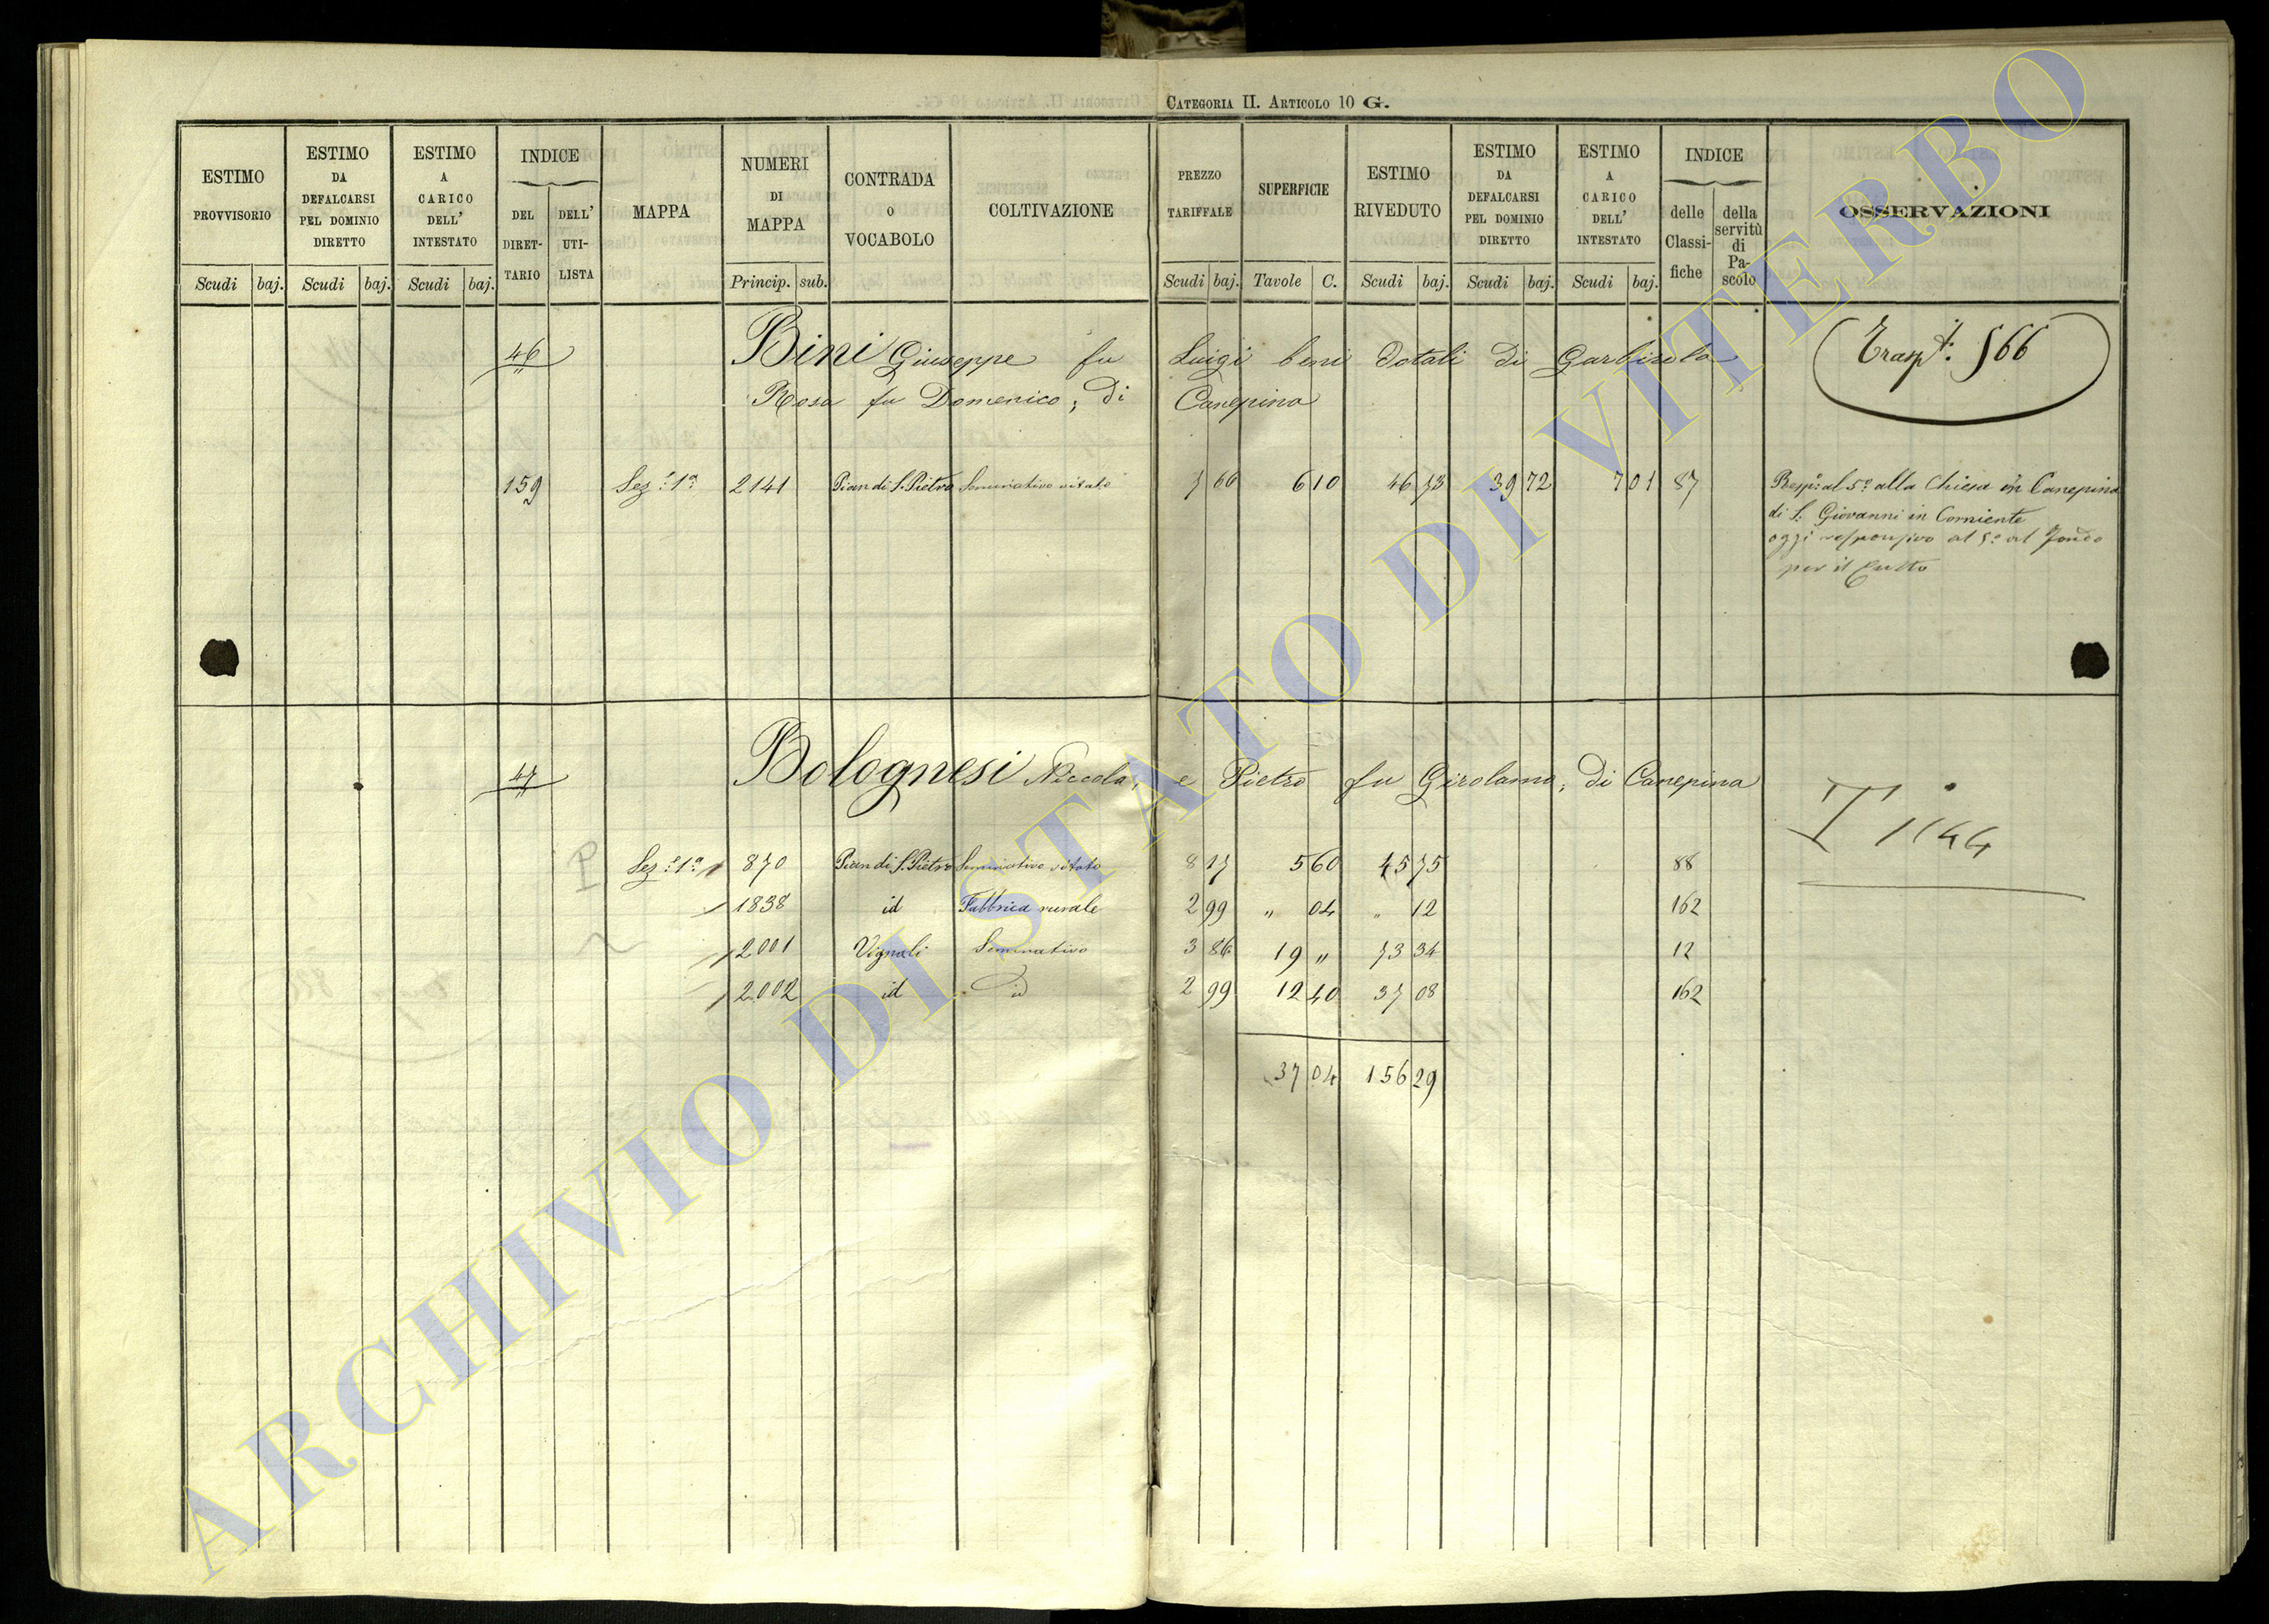 CATEGORIA II. ARTICOLO 10 G.
ESTIMO PROVVISORIO
Scudi baj.
ESTIMO DA DEFALCARSI PEL DOMINIO DIRETTO
Scudi baj.
ESTIMO A CARICO DELL' INTESTATO
Scudi baj.
INDICE
DEL DIRETTARIO
DELL' UTILISTA
MAPPA
NUMERI DI MAPPA
Princip. sub.
CONTRADA O VOCABOLO
COLTIVAZIONE
PREZZO TARIFFALE
Scudi baj.
SUPERFICIE
Tavole C.
ESTIMO RIVEDUTO
Scudi baj.
ESTIMO DA DEFALCARSI PEL DOMINIO DIRETTO
Scudi baj.
ESTIMO A CARICO DELL' INTESTATO
Scudi baj.
INDICE
delle Classifiche
della servitù di Pascolo
OSSERVAZIONI
46 Bini Giuseppe fu Luigi beni dotali di
Rosa fu Domenico; di Canepina
Trasp.t. 566
159 Sez.e 1a 2141 Pian di S. Pietro Seminativo vitato 7 66 6 10 46 73 39 72 7 01 87
Resp.o al 5o alla Chiesa in Canepina
di S. Giovanni in
oggi responsivo al 5o al Fondo
per il Culto
47 Bolognesi Niccola, e Pietro fu Girolamo; di Canepina
P Sez.e 1a 870 Pian di S. Pietro Seminativo vitato 8 17 5 60 45 75 88
1838 id Fabbrica rurale 2 99 " 04 " 12 162
2001 Vignali Seminativo 3 86 19 " 73 34 12
2002 id id 2 99 12 40 37 08 162
37 04 156 29
ARCHIVIO DI STATO DI VITERBO